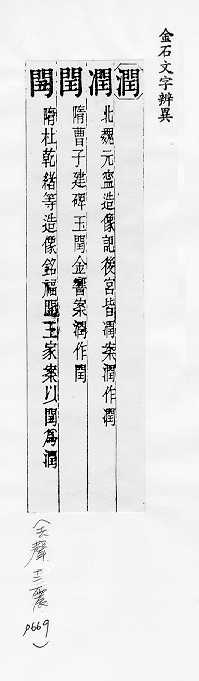 金石文字辨異
潤
潤 北魏元寍造像記後宮皆潤案潤作潤
閏 隋曹子建碑玉閏金響案潤作閏
閏 隋杜乾緒等造像銘福閏玉家案以閏為潤
(去聲十二震 p669)